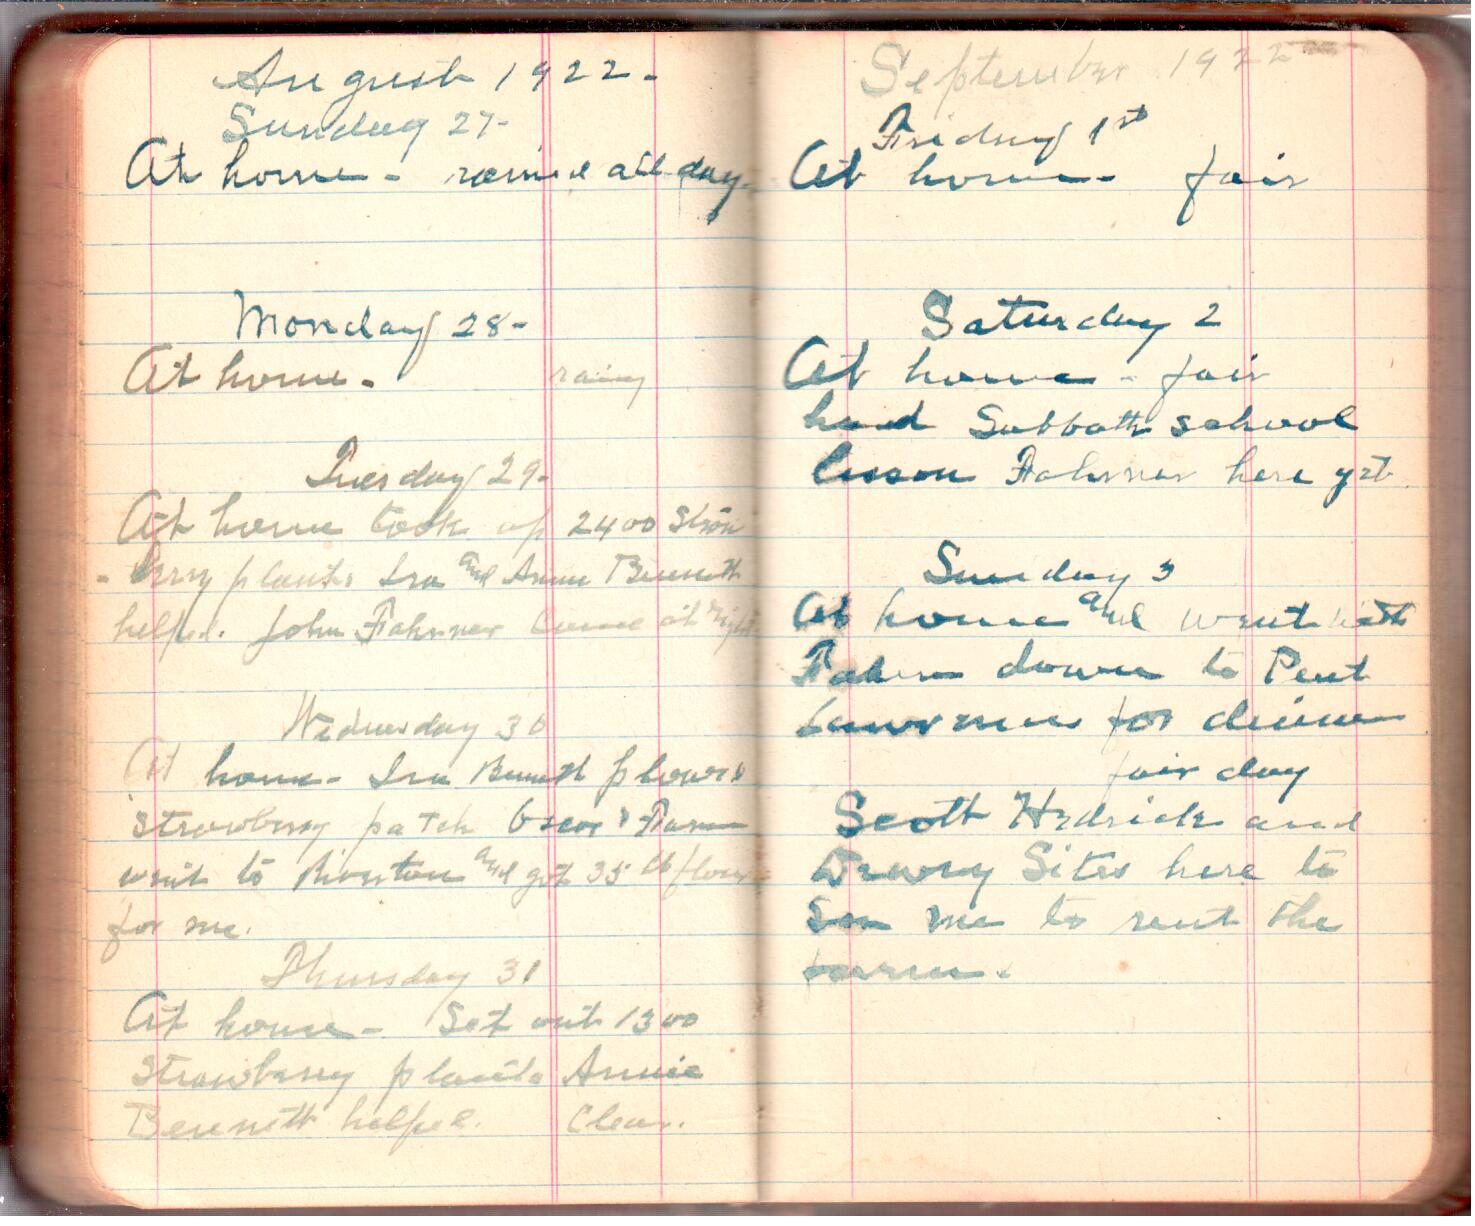 August 1922-
Sunday 27-
At home - rained all day.
Monday 28-
At home - rainy
Tuesday 29-
At home took up 2400 Straw
- berry plants Ira and Annie Bennett
helped. John Fahrner Came at night
Wednesday 30
At home - Ira Bennett plowed
strawberry patch Oscar &
went to and got 35 lb flour
for me.
Thursday 31
At home - Set out 1300
Strawberry plants Annie
Bennett helped. Clear.
September 1922
Friday 1st
At home - fair
Saturday 2
At home - fair
had Sabbath school
lesson Fahrner here yet.
Sunday 3
At home and went with
down to Pent
for dinner
fair day
Scott Hedrick and
Drewry Sites here to
See me to rent the
farm.